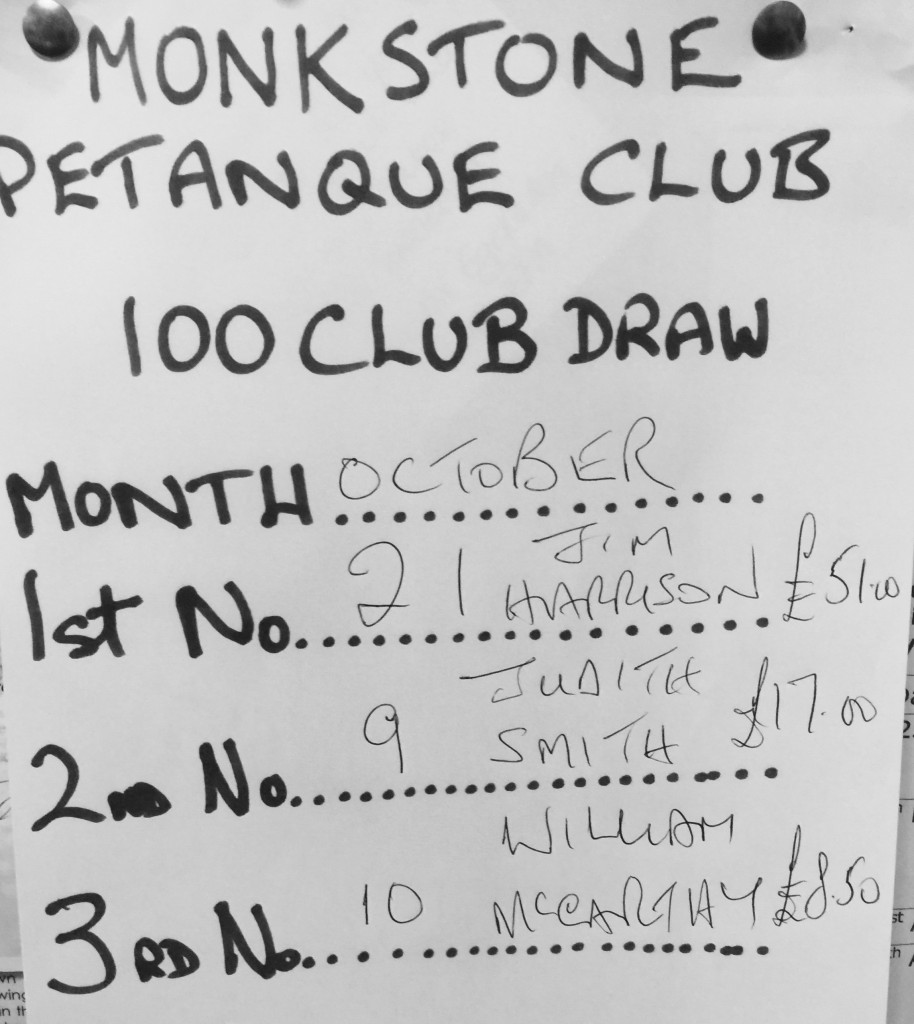 MONKSTONE
PETANQUE CLUB
100 CLUB DRAW
MONTH OCTOBER
1st No. 21 JIM HARRISON £51.00
2ND No. 9 JUDITH SMITH £17.00
3RD No. 10 WILLIAM MCCARTHY £8.50